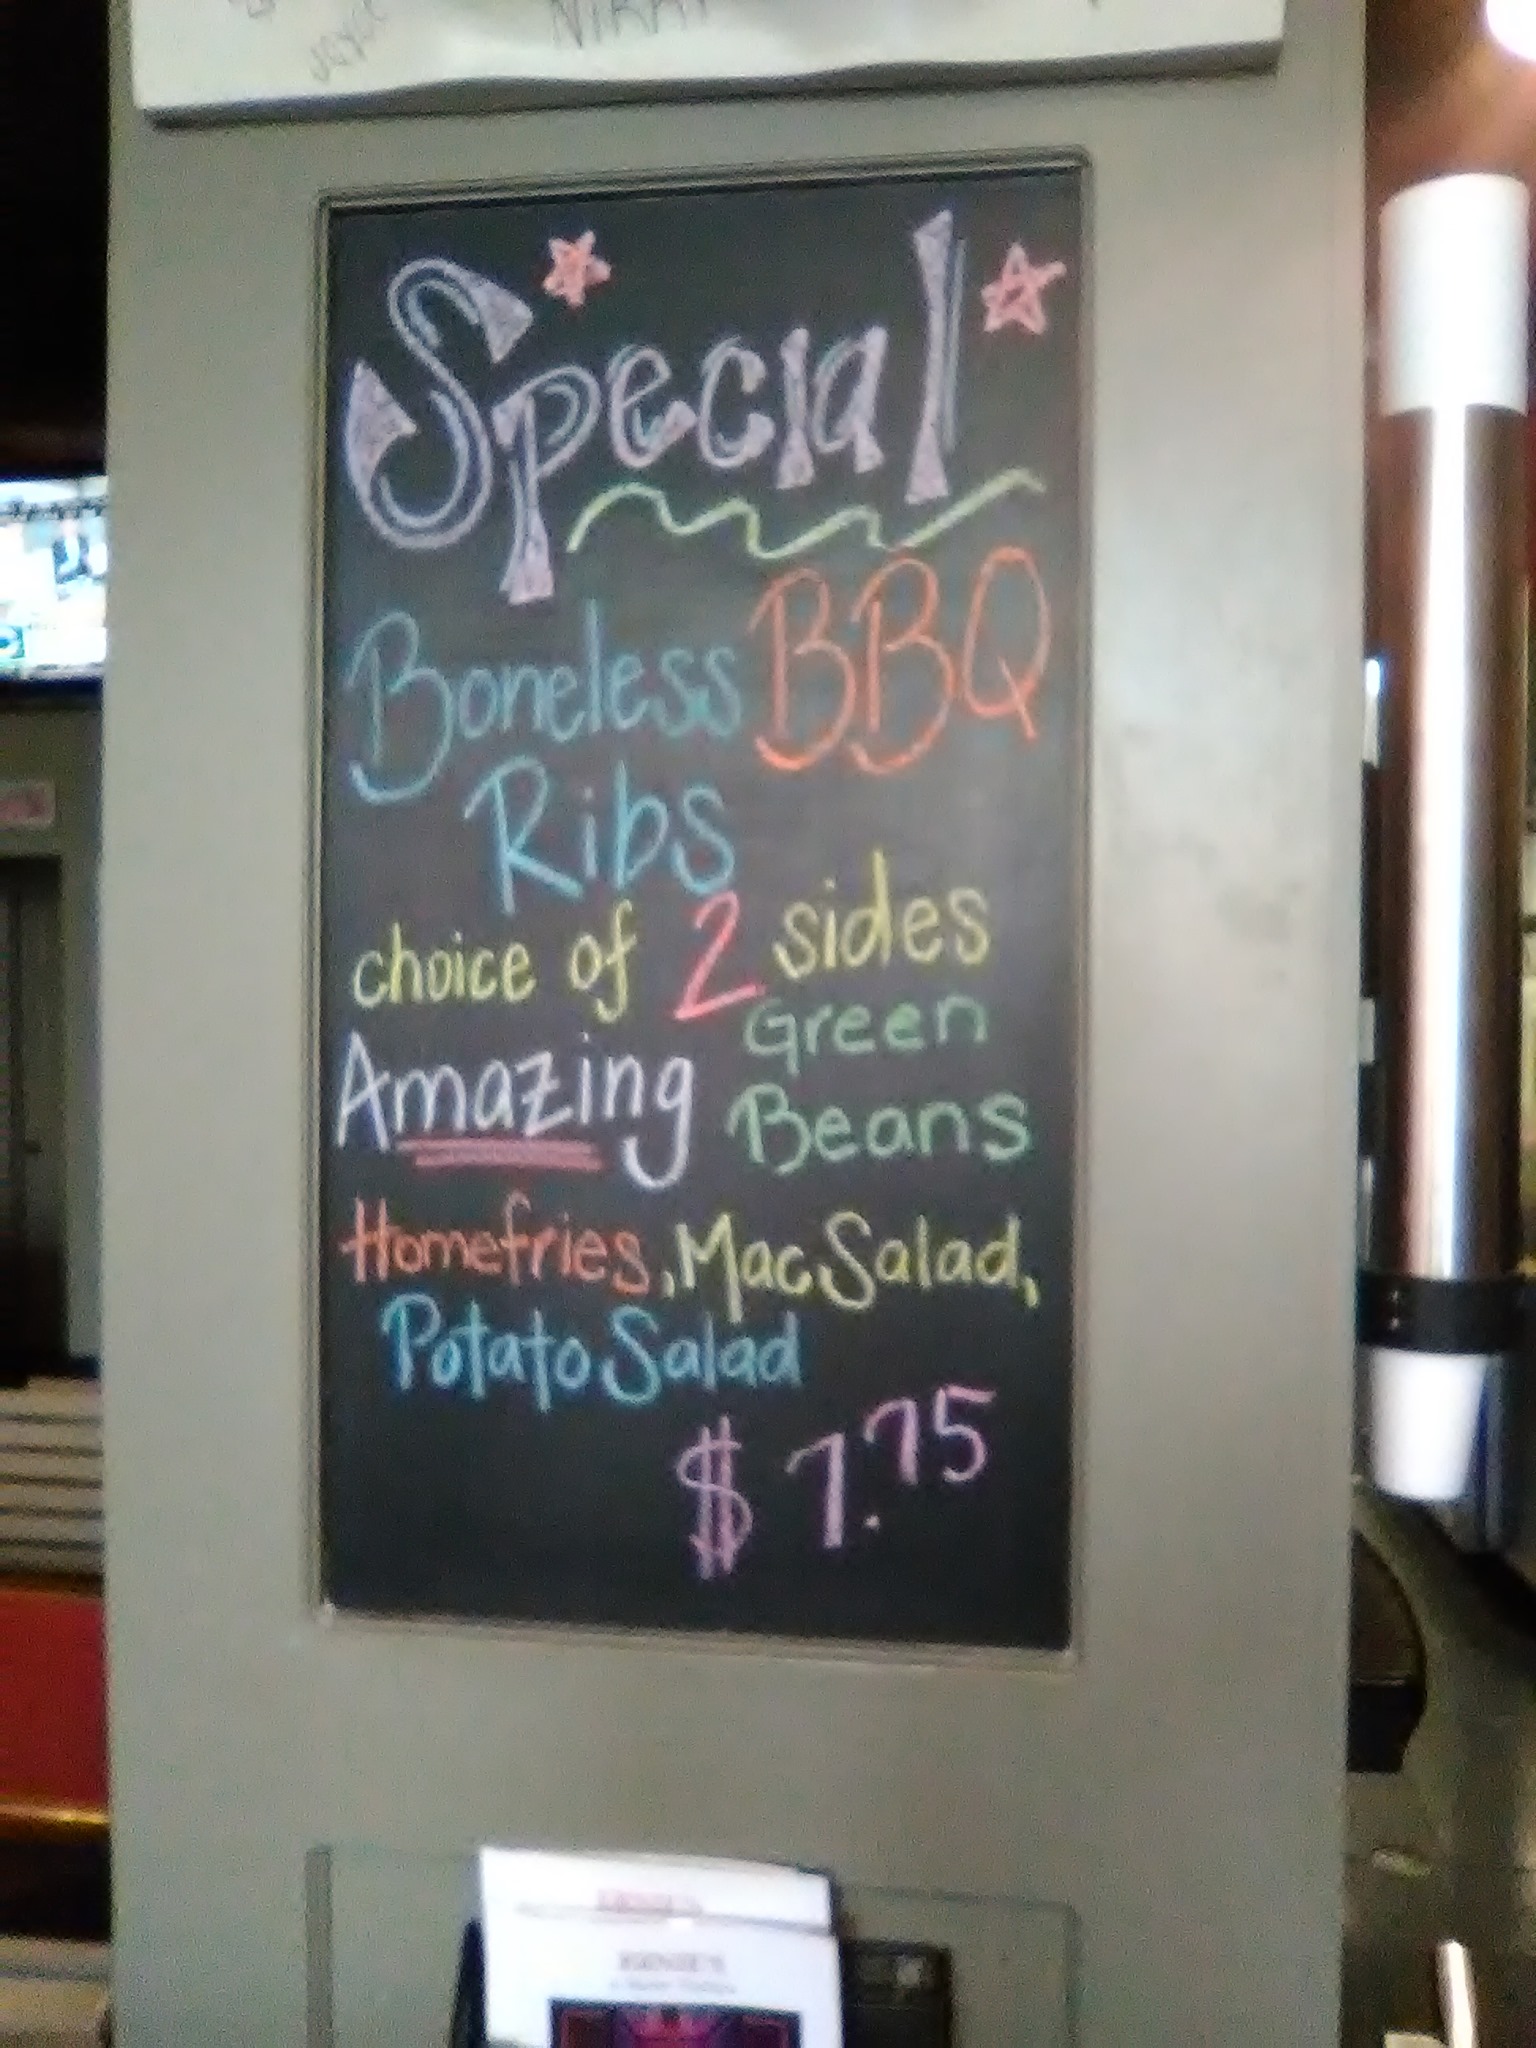 Special
Boneless BBQ
Ribs
choice of 2 sides
Amazing Green
Beans
Homefries, Mac Salad,
Potato Salad
$ 7.75